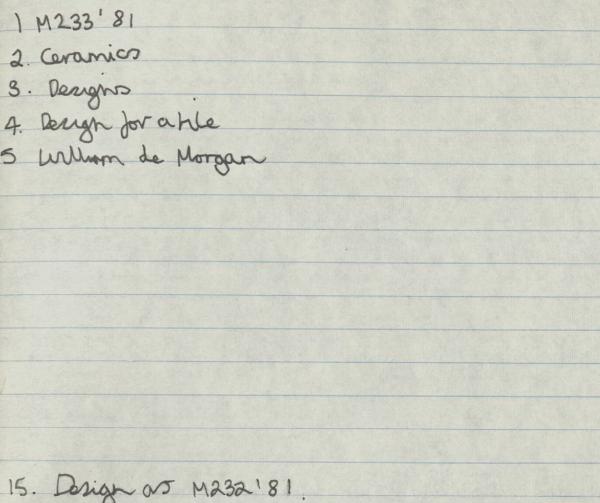 1 M233'81
2. Ceramics
3. Designs
4. Design for a tile
5 William de Morgan
15. Design as M232'81.